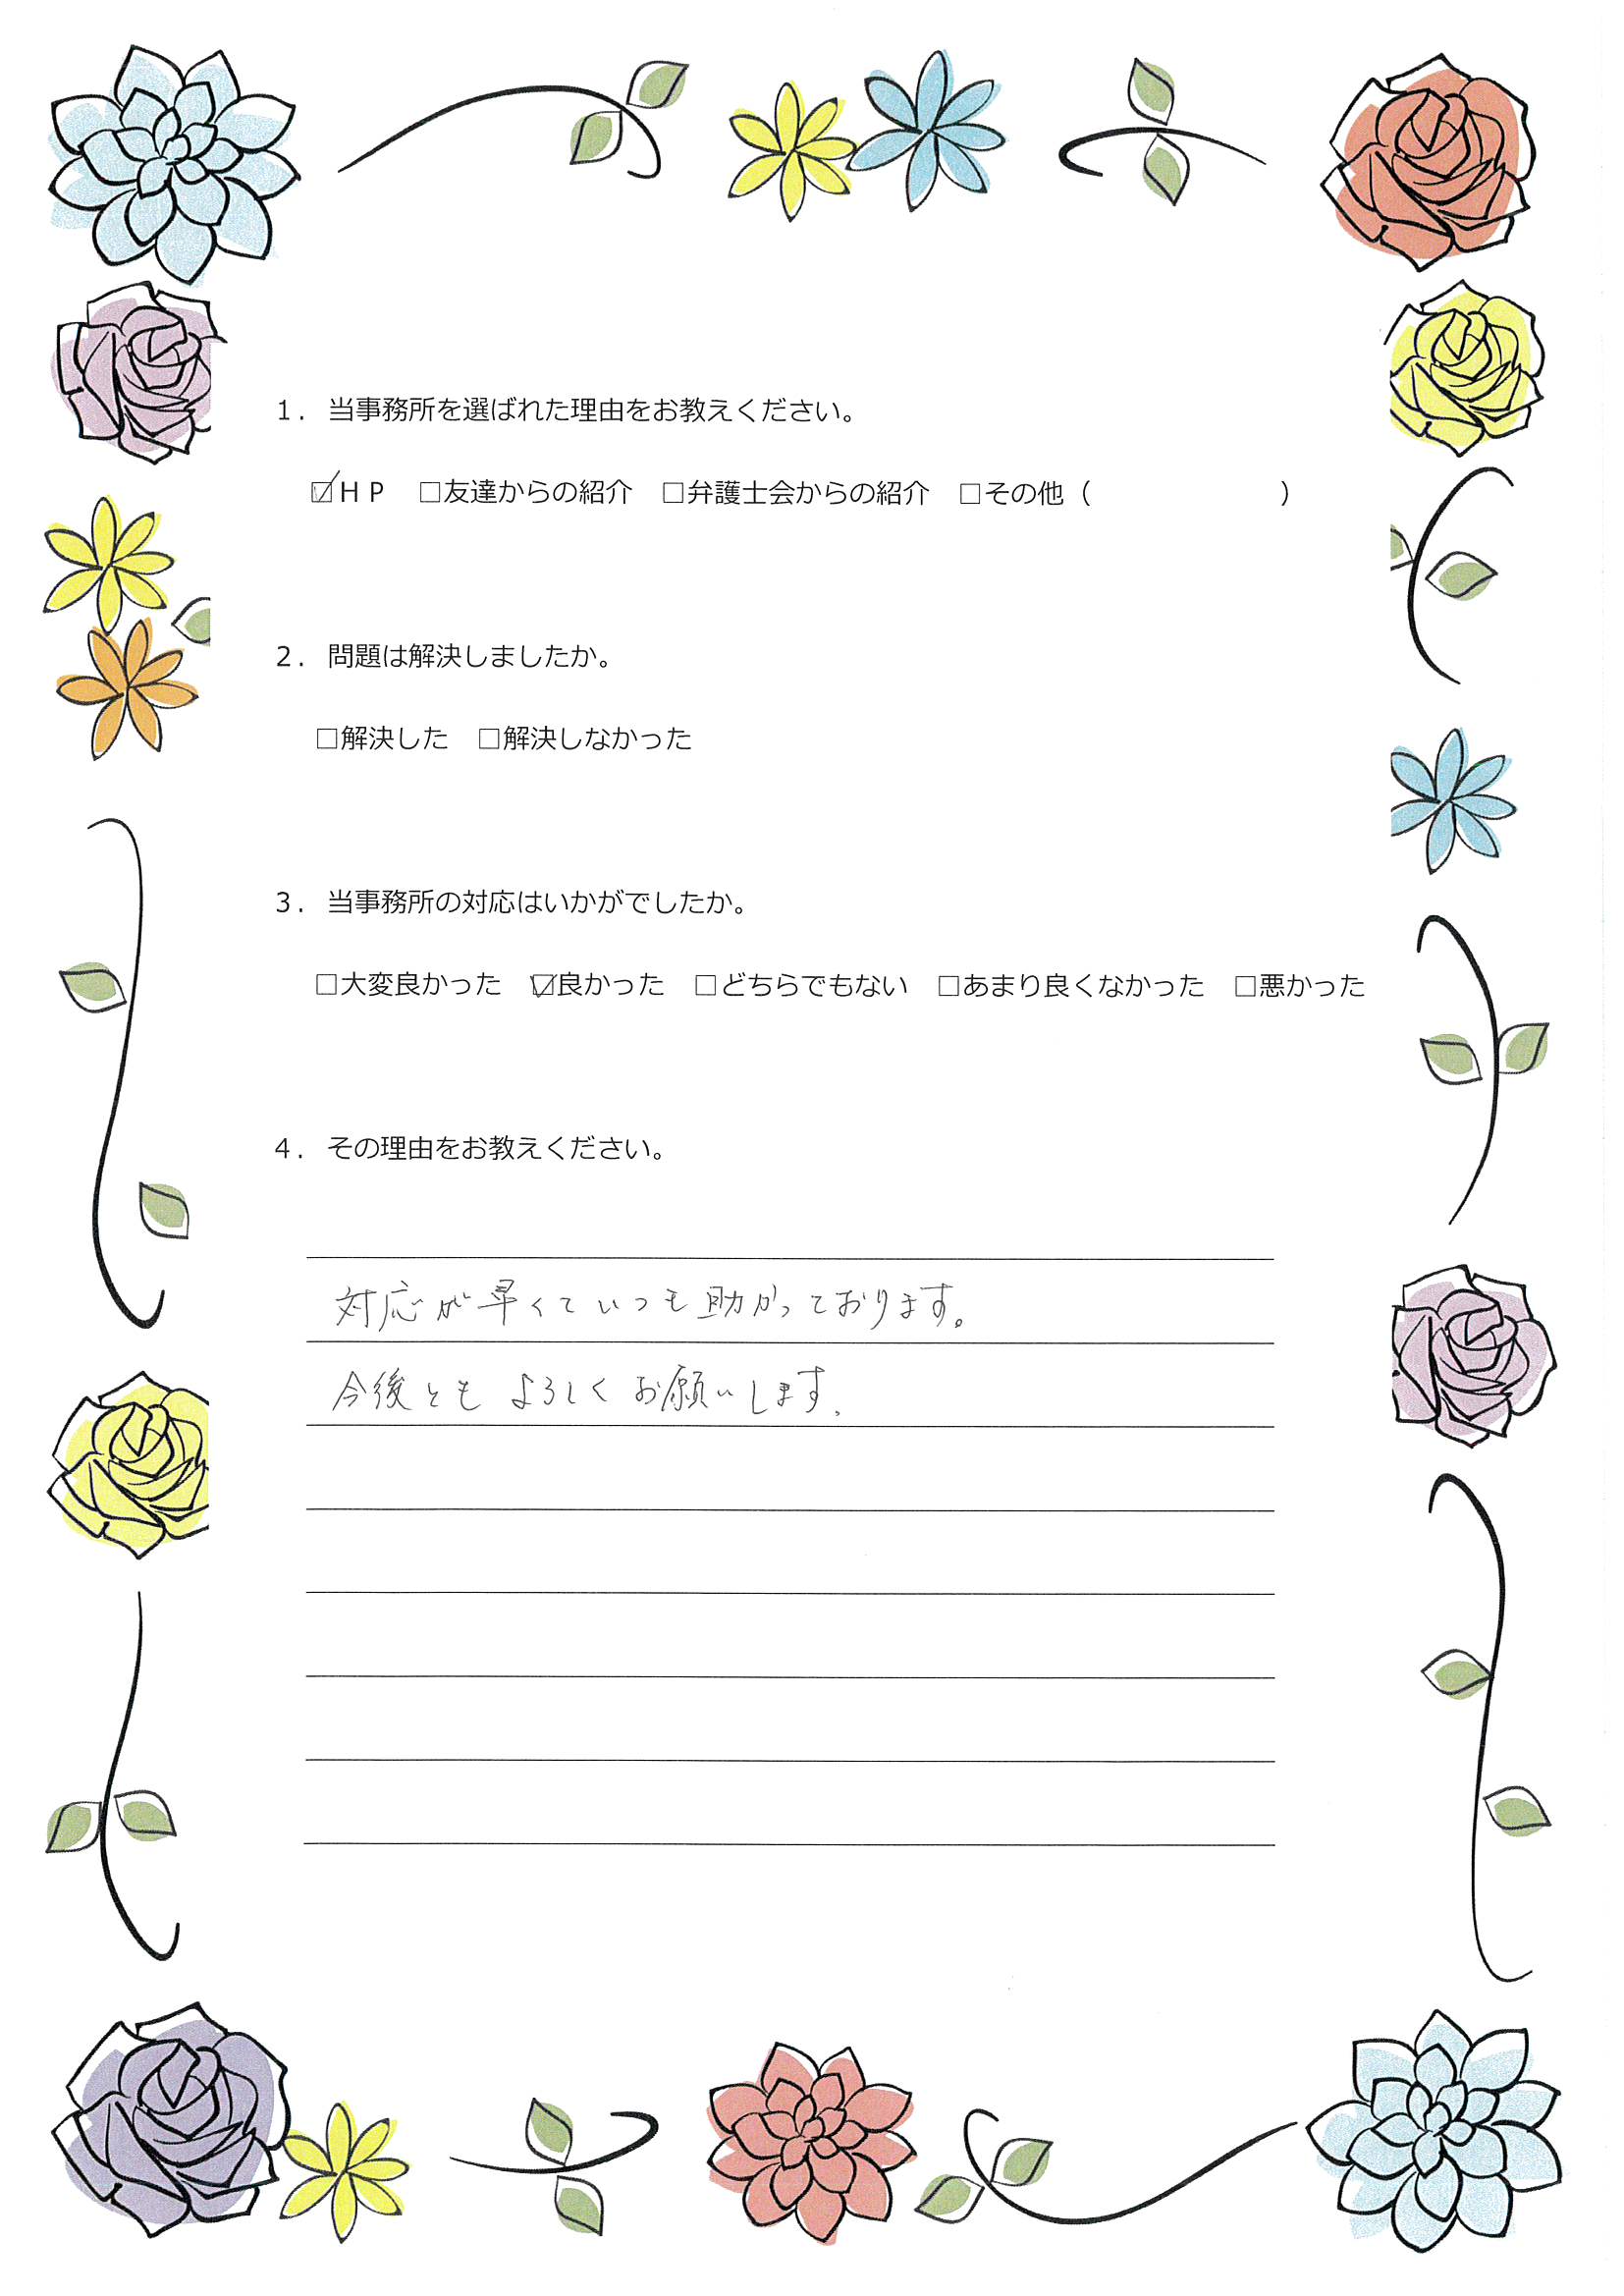 １．当事務所を選ばれた理由をお教えください。
☑ＨＰ　□友達からの紹介　□弁護士会からの紹介　□その他（　　　　　　　）
２．問題は解決しましたか。
□解決した　□解決しなかった
３．当事務所の対応はいかがでしたか。
□大変良かった　☑良かった　□どちらでもない　□あまり良くなかった　□悪かった
４．その理由をお教えください。
対応が早くていつも助かっております。
今後ともよろしくお願いします.